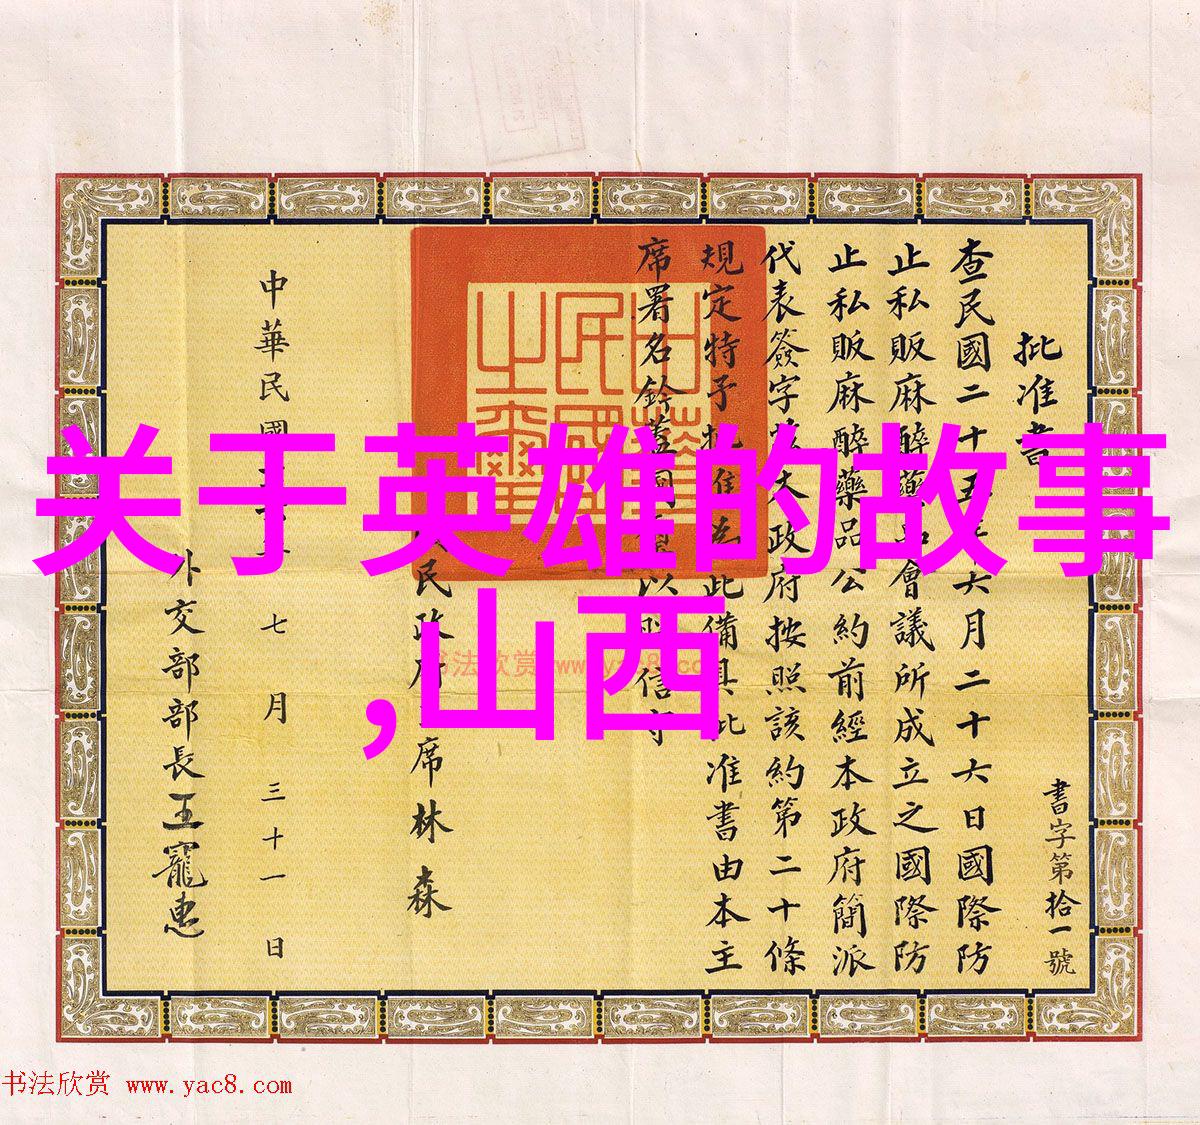 关于英雄的故事
,山西
批准書
書字第拾一號
查民國二十五年六月二十六日國際防
止私販麻醉藥品會議所成立之國際防
止私販麻醉藥品公約前經本政府簡派
代表簽字 大政府按照該約第二十條
規定特予批准 此備具此准書由本主
席署名鈐蓋 以 信守
民政府 席林森
中華民國 七月三十一日
外交部部長王寵惠
书法欣赏 www.yac8.com
书法欣赏 www.yac8.com